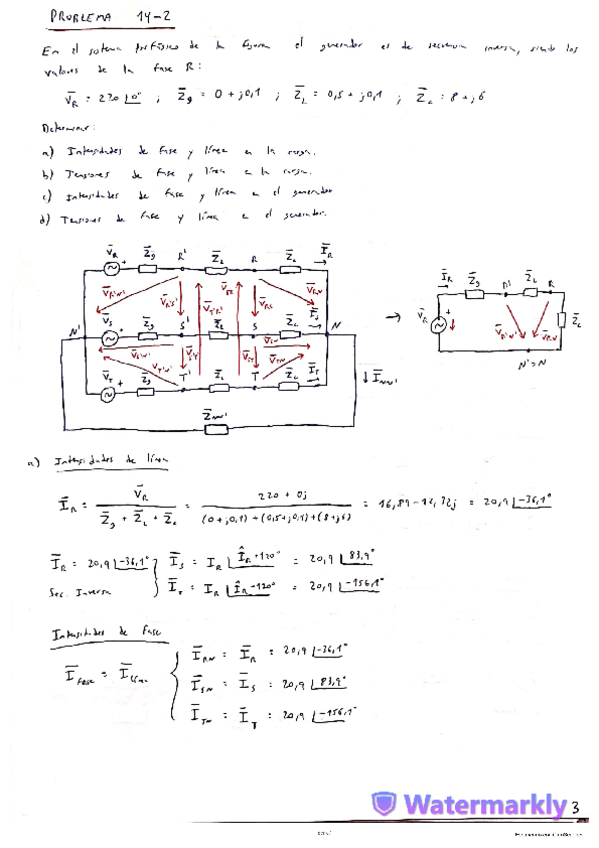 PROBLEMA 14-2
En el sistema trifásico de la figura el generador es de secuencia inversa, siendo los
valores de la fase R:
V̄R = 220 |0° ; Z̄g = 0 + j0,1 ; Z̄L = 0,5 + j0,1 ; Z̄c = 8 + j6
Determinar:
a) Intensidades de fase y línea en la carga.
b) Tensiones de fase y línea en la carga.
c) Intensidades de fase y línea en el generador
d) Tensiones de fase y línea en el generador.
V̄R + Z̄g R' Z̄L R Z̄c ĪR
V̄R'N' V̄R'S' V̄T'R' V̄RS V̄RN
N' V̄S Z̄g S' Z̄L S Z̄c N
V̄S'N' V̄T'N' V̄SN V̄TN
V̄T + Z̄g T' Z̄L T Z̄c ĪT
Z̄NN' ĪNN'
ĪR Z̄g R' Z̄L R
V̄R + V̄R'N' V̄RN Z̄c
N'=N
a) Intensidades de línea
ĪR = V̄R / (Z̄g + Z̄L + Z̄c) = (220 + 0j) / ((0+j0,1)+(0,5+j0,1)+(8+j6)) = 16,89-12,32j = 20,9 |-36,1°
ĪR = 20,9 |-36,1° ĪS = IR |ÎR+120° = 20,9 |83,9°
Sec. Inversa ĪT = IR |ÎR-120° = 20,9 |-156,1°
Intensidades de fase
Īfase = Īlínea
ĪRN = ĪR = 20,9 |-36,1°
ĪSN = ĪS = 20,9 |83,9°
ĪTN = ĪT = 20,9 |-156,1°
Watermarkly
3